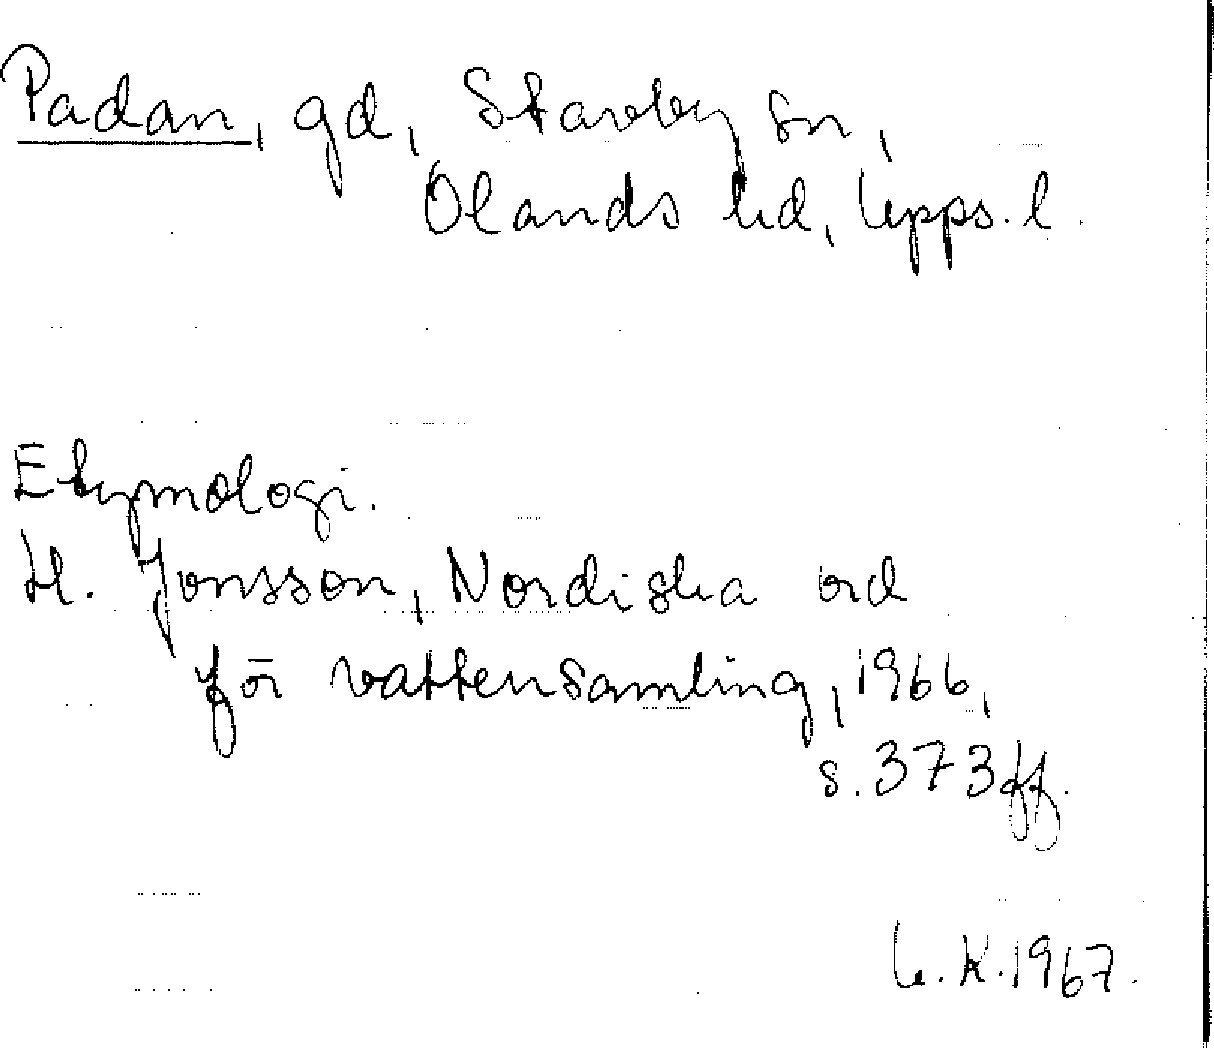 Padan, gd, Stavby sn,
Olands hd, Upps. l.
Etymologi.
H. Jonsson, Nordiska ord
för vattensamling, 1966,
s. 373 ff.
U. K. 1967.